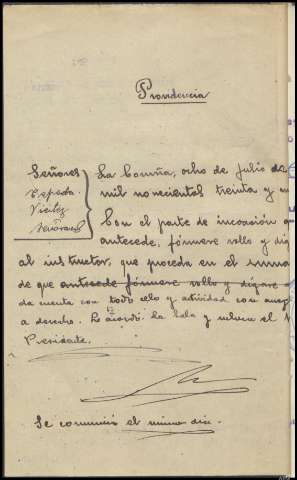 Providencia
Señores
Cepeda
Vieitez
La Coruña, ocho de Julio de
mil novecientos treinta y
Con el parte de incoación
antecede, fórmese rollo y
al instructor, que proceda en el
de que antecede fórmese rollo y
da cuenta con todo celo y actividad con
a derecho. Lo acordó la Sala y rubrica el
Presidente.
Se comunicó el mismo dia.